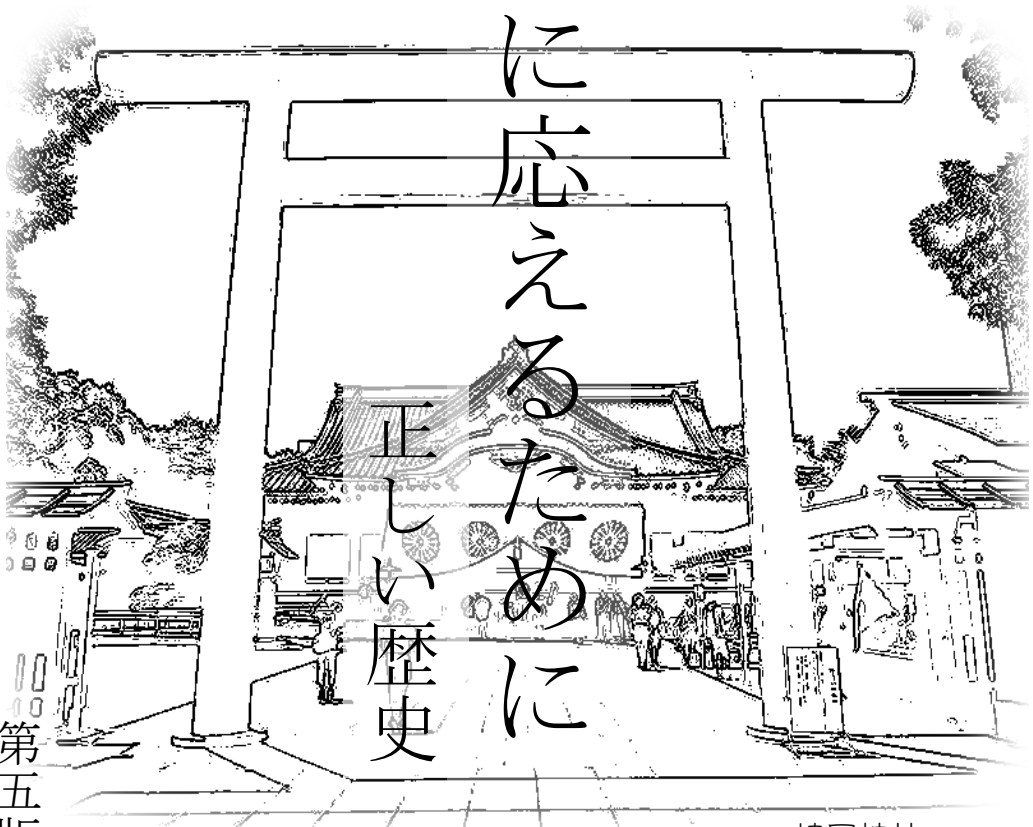 に応えるために
正しい歴史
第五版